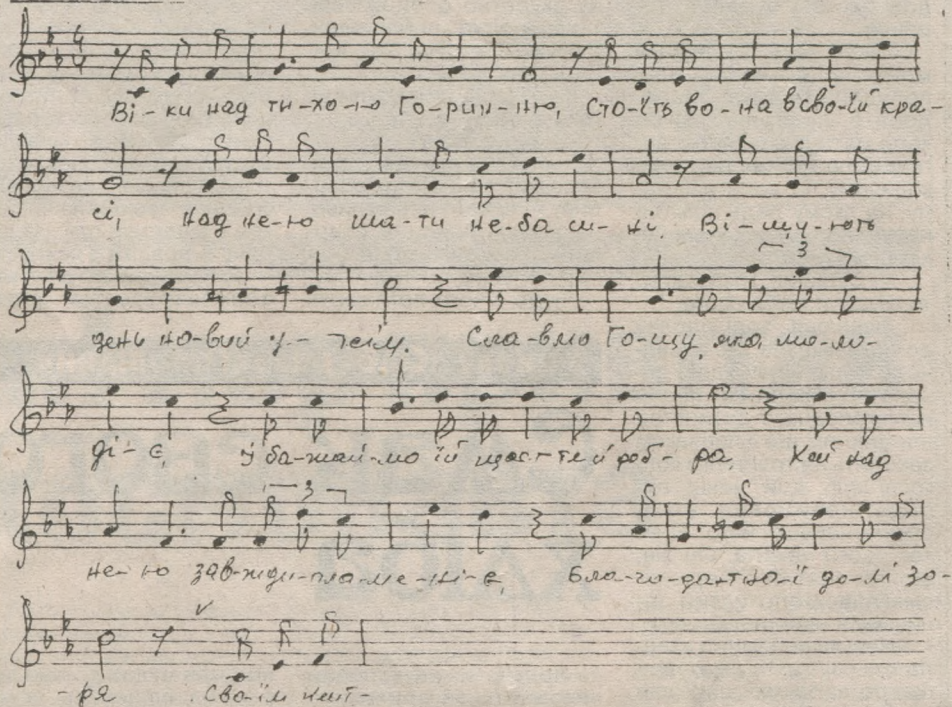 Ві-ки над ти-хо-ю Го-рин-ню, Сто-їть во-на в сво-їй кра-
сі, над не-ю ша-ти не-ба си-ні, Ві-щу-ють
день но-вий у-сім. Сла-вмо Го-щу, яка мо-ло-
3
ді-є, У ба-жай-мо їй щас-тя й доб-ра, Хай над
не-ю зав-жди пла-ме-ні-є, Бла-го-дат-но-ї до-лі зо-
3
-ря Сво-їм